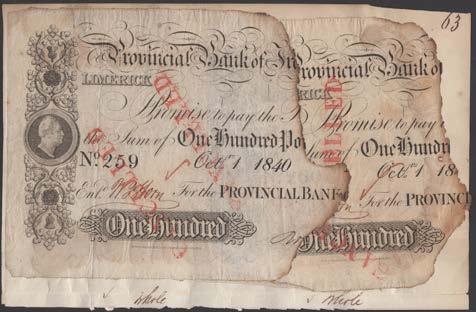 63
Provincial Bank of Ir
LIMERICK
Promise to pay the
the Sum of One Hundred Po
No 259 Octr. 1 1840
Entd. For the PROVINCIAL BANK
One Hundred
Provincial Bank of
RICK
Promise to pay
Sum of One Hundr
Octr. 1 184
For the PROVINC
One Hundred
whole
whole